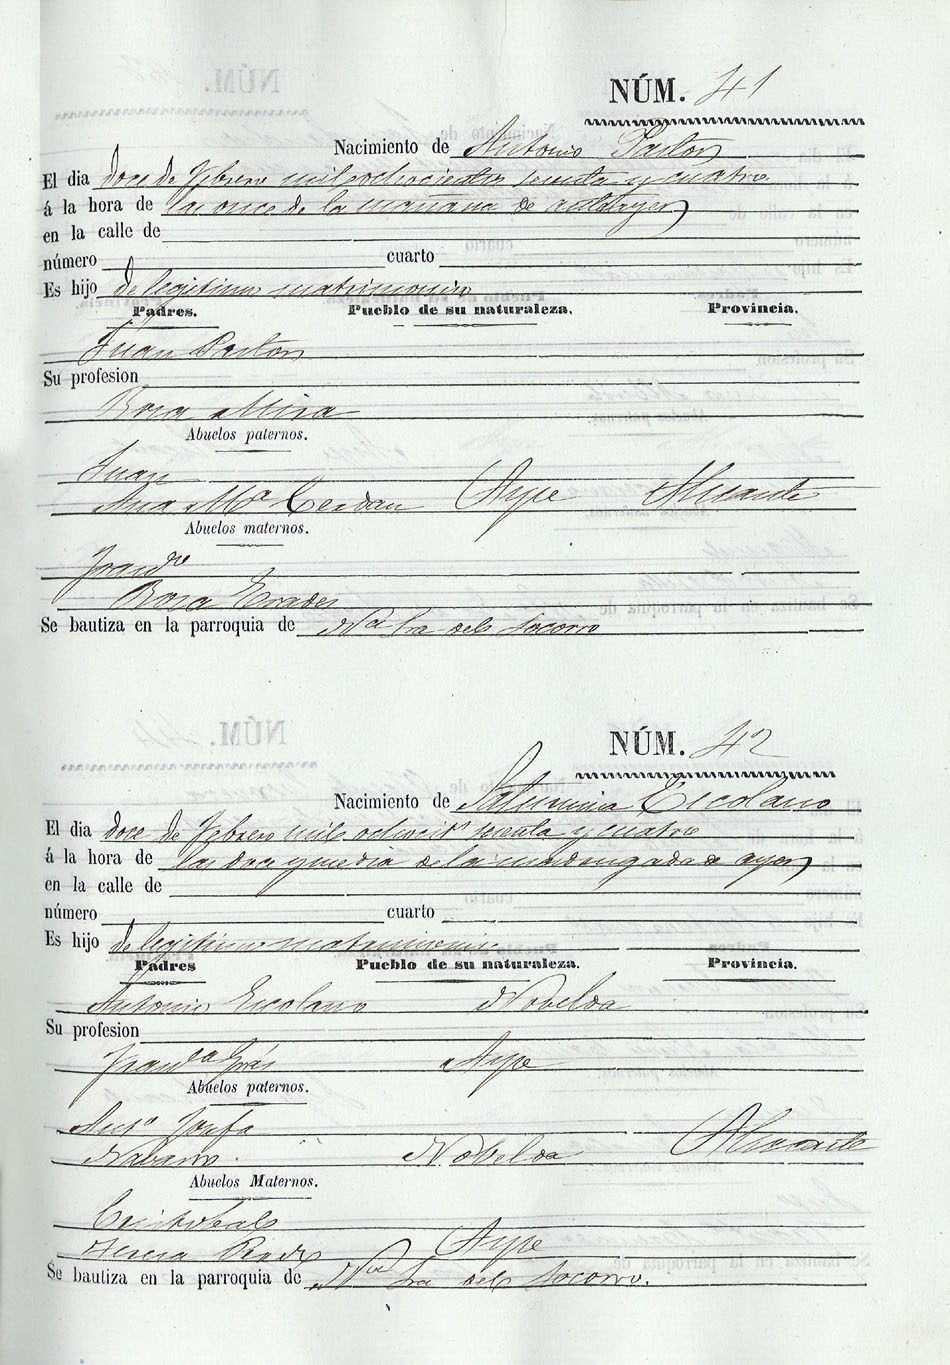 NÚM. 41
Nacimiento de Antonio Pastor
El dia doce de Febrero mil ochocientos sesenta y cuatro
á la hora de las once de la mañana de antdayer
en la calle de
número cuarto
Es hijo de legitimo matrimonio
Padres. Pueblo de su naturaleza. Provincia.
Juan Pastor
Su profesion
Rosa Mira
Abuelos paternos.
Juan
Ana Mª Cerdan Aspe Alicante
Abuelos maternos.
Franco
Rosa Erades
Se bautiza en la parroquia de Ntra Sra del Socorro
NÚM. 42
Nacimiento de Saturnina Escolano
El dia doce de Febrero mil ochocits sesenta y cuatro
á la hora de las doce y media de la madrugada de ayer
en la calle de
número cuarto
Es hijo de legitimo matrimonio
Padres Pueblo de su naturaleza. Provincia.
Antonio Escolano Novelda
Su profesion
Franca Aspe
Abuelos paternos.
Anto Josefa
Navarro Novelda Alicante
Abuelos Maternos.
Cristobal
Teresa Aspe
Se bautiza en la parroquia de Ntra Sra del Socorro.